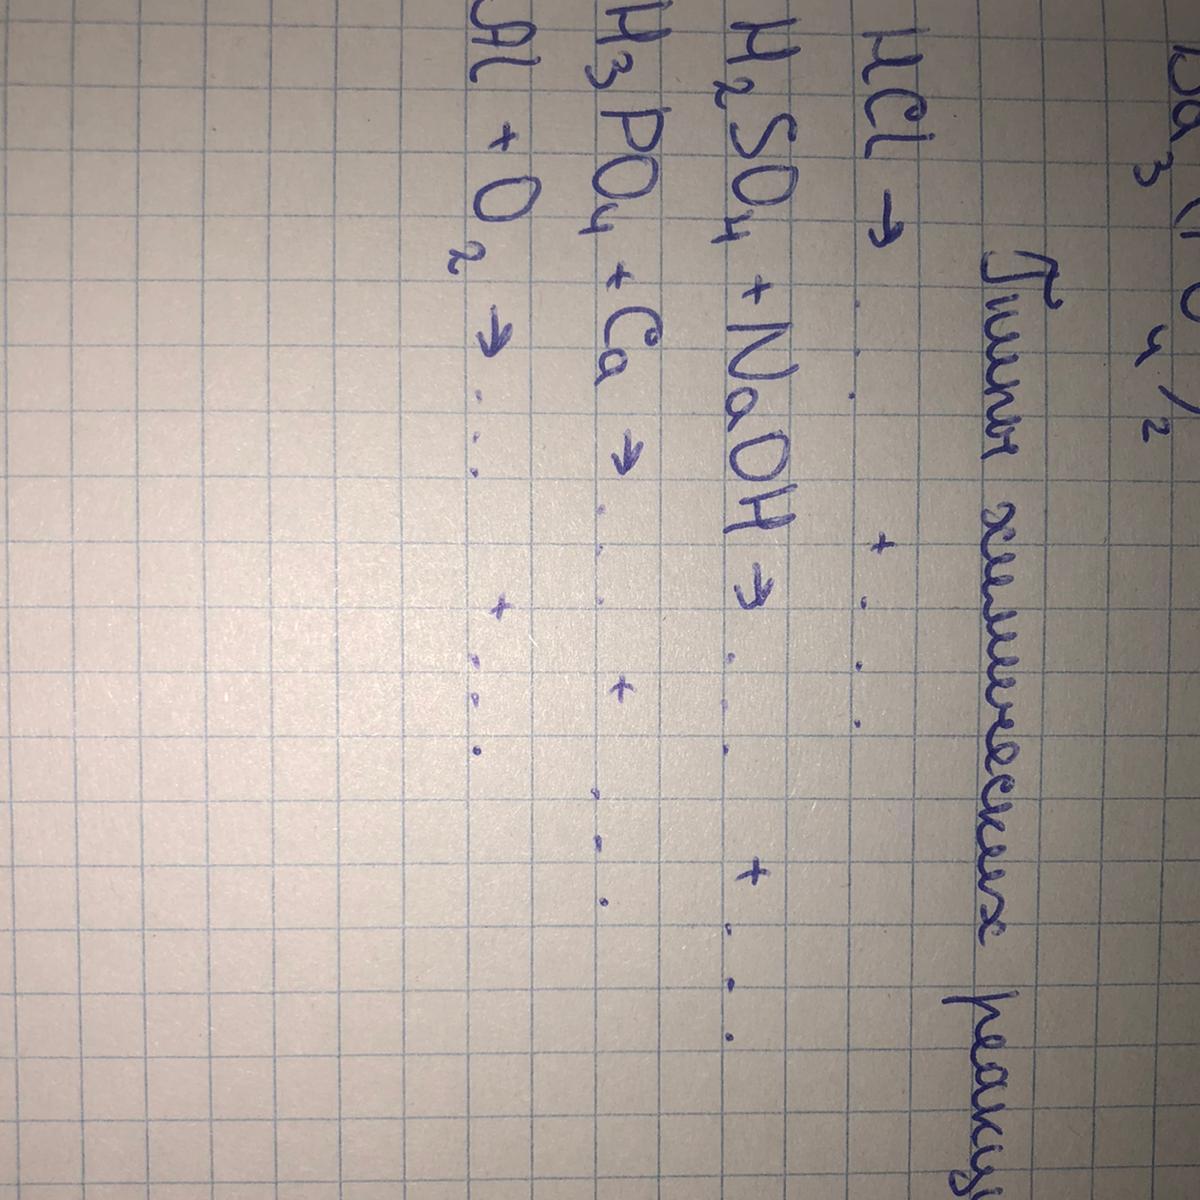 Ba₃(PO₄)₂
Типы химических реакци
HCl → . . . + . . .
H₂SO₄ + NaOH → . . . + . . .
H₃PO₄ + Ca → . . . + . . .
Al + O₂ → . . . + . . .